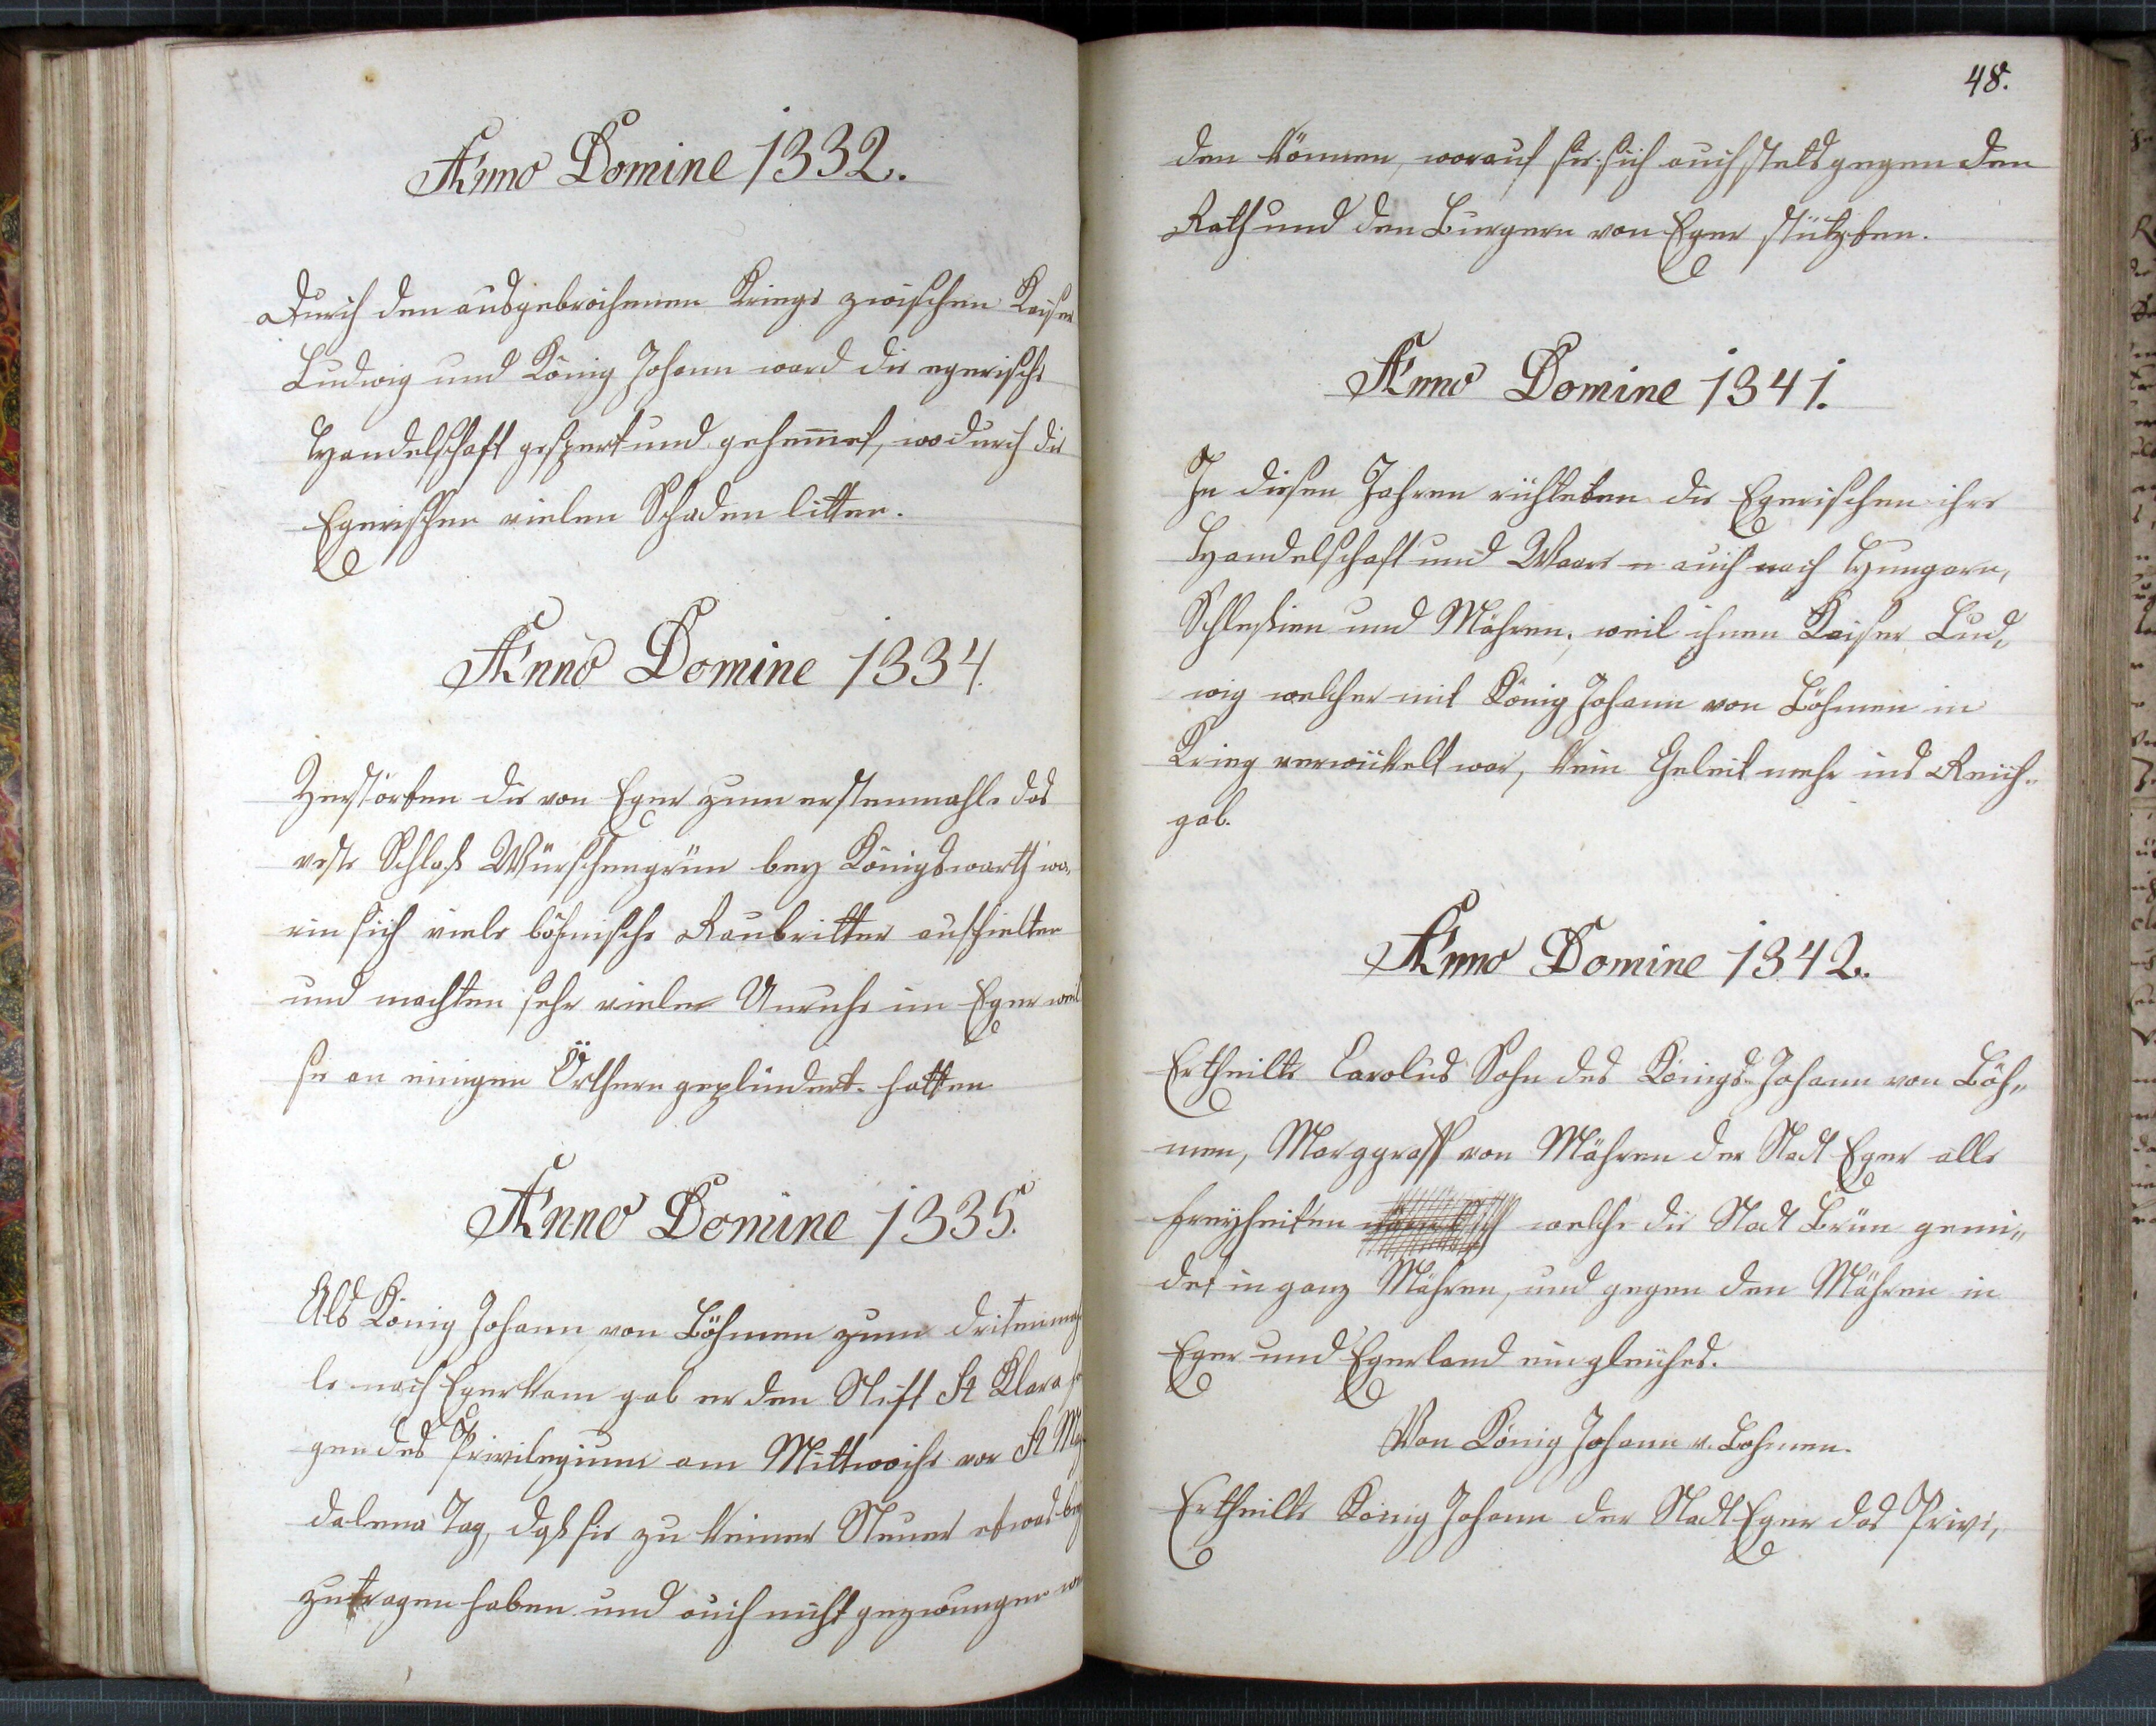 Anno Domine 1332.
Durch den ausgebrochenen Kriege zwischen Kaiser
Ludwig und König Johann ward die egerische
Handelschaft gespert und gehem̄et, wodurch die
Egerischen vielen Schaden litten.
Anno Domine 1334.
Zerstörten die von Eger zum erstenmahle das
veste Schloß Würschengrün bey Königswarth wo,
rin sich viele böhmische Raubritter aufhielten
und machten sehr vielen Unruhe im Eger weil
sie an einigen Örthern geplindert hatten
Anno Domine 1335.
Als König Johann von Böhmen zum dritenmah
le nach Eger kam gab er den Stift St Klara fo
gendes Privilegium am Mittwoche vor St Mag
dalena Tag, daß sie zu keiner Steuer etwas bey
zutragen haben und auch nicht gezwungen wer
48.
den können, worauf sie sich auch stets gegen den
Rath und den Burgern von Eger stützten.
Anno Domine 1341.
In diesen Jahren richteten die Egerischen ihre
Handelschaft und Waare auch nach Hungarn,
Schlesien und Mähren, weil ihnen Kaiser Lud,,
wig welcher mit König Johann von Böhmen in
Krieg verwickelt war, kein Geleit mehr ins Reich
gab.
Anno Domine 1342.
Ertheilte Carolus Sohn des Königs Johann von Böh,,
men, Marggraff von Mähren der Stadt Eger alle
Freyheiten welche die Stadt Brün geni,,
det in ganz Mähren, und gegen den Mähren in
Eger und Egerland ein gleiches.
Von König Johann v. Bohmen.
Ertheilte König Johann der Stadt Eger das Privi,